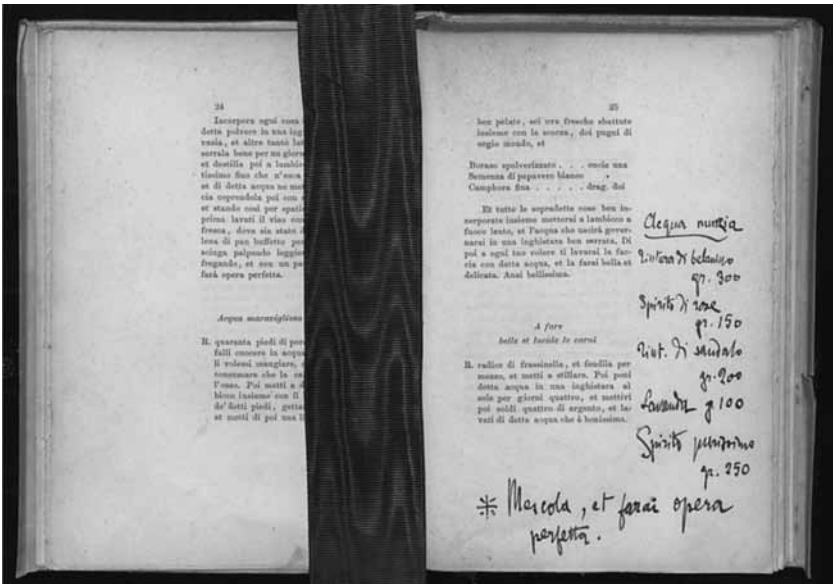 24
Incorpora ogni cosa
detta polvere in una ing
vasia, et altro tanto lat
serrala bene per un giorn
et destilla poi a lambic
tissimo fino che n'esca
et di detta acqua ne met
cia coprendola poi con
et stando così per spatio
prima lavati il viso con
fresca, dove sia stato
lena di pan buffetto per
sciuga palpando leggier
fregando, et con un pa
farà opera perfetta.
Acqua maravigliosa
R. quaranta piedi di por
falli cuocere in acqua
li volessi mangiare,
consumare che la ca
l'osso. Poi metti a
bicco insieme con li
de' detti piedi, getta
et metti di poi una li
25
ben pelate, sei ova fresche sbattute
insieme con la scorza, doi pugni di
orgio mondo, et
Boraso spolverizzato . . . oncie una
Semenza di papavero bianco „
Camphora fina . . . . . drag. doi
Et tutte le sopradette cose ben in-
corporate insieme metterai a lambicco a
fuoco lento, et l'acqua che uscirà gover-
narai in una inghistara ben serrata. Di
poi a ogni tuo volere ti lavarai la fac-
cia con detta acqua, et la farai bella et
delicata. Anzi bellissima.
A fare
bella et lucida la carni
R. radice di frassinella, et fendila per
mezzo, et metti a stillare. Poi poni
detta acqua in una inghistara al
sole per giorni quattro, et mettivi
poi soldi quattro di argento, et la-
vati di detta acqua che è bonissima.
Acqua nunzia
Tintura di belzuino
gr. 300
Spirito di rose
gr. 150
Tint. di sandalo
gr. 200
Lavanda g. 100
Spirito purissimo
gr. 250
* Mescola, et farai opera
perfetta.